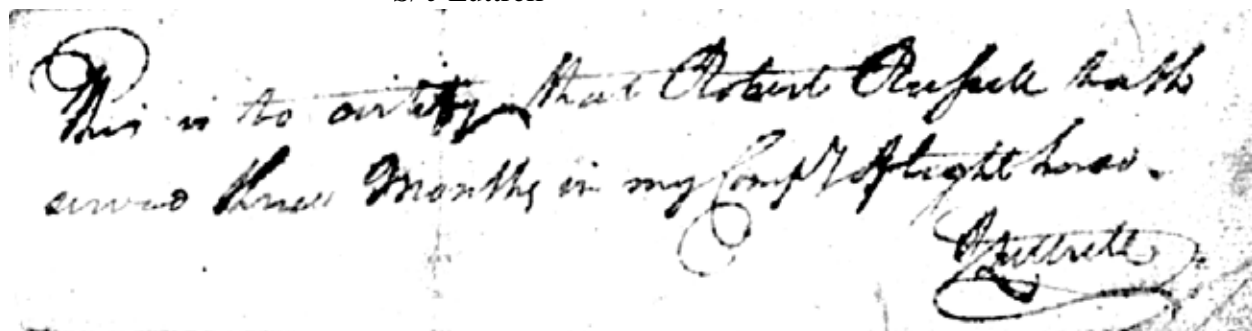 This is to certify that Robert Russell hath
served three Months in my Compy of light horse.